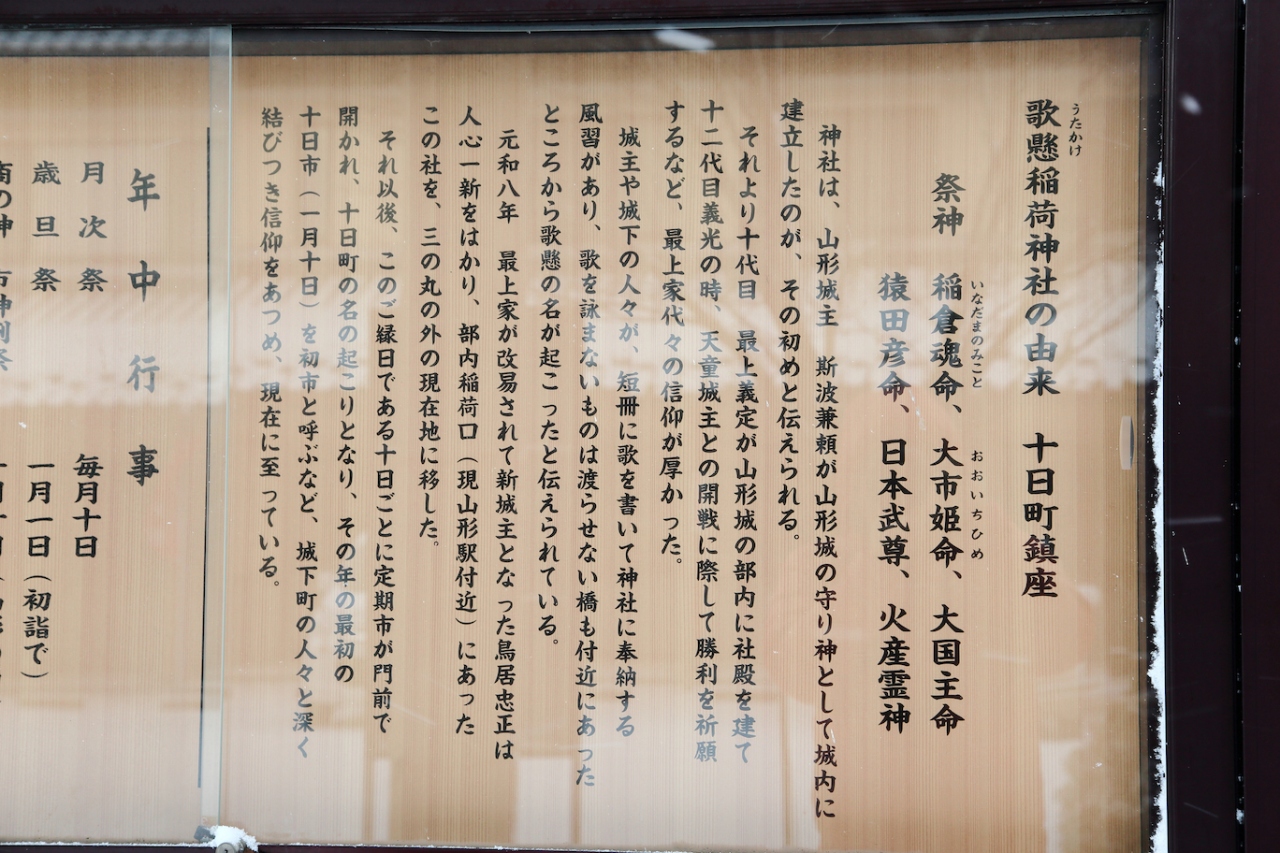 うたかけ
歌懸稲荷神社の由来 十日町鎮座
いなだまのみこと おおいちひめ
祭神 稲倉魂命、大市姫命、大国主命
猿田彦命、日本武尊、火産霊神
神社は、山形城主 斯波兼頼が山形城の守り神として城内に
建立したのが、その初めと伝えられる。
それより十代目 最上義定が山形城の部内に社殿を建て
十二代目義光の時、天童城主との開戦に際して勝利を祈願
するなど、最上家代々の信仰が厚かった。
城主や城下の人々が、短冊に歌を書いて神社に奉納する
風習があり、歌を詠まないものは渡らせない橋も付近にあった
ところから歌懸の名が起こったと伝えられている。
元和八年 最上家が改易されて新城主となった鳥居忠正は
人心一新をはかり、部内稲荷口（現山形駅付近）にあった
この社を、三の丸の外の現在地に移した。
それ以後、このご縁日である十日ごとに定期市が門前で
開かれ、十日町の名の起こりとなり、その年の最初の
十日市（一月十日）を初市と呼ぶなど、城下町の人々と深く
結びつき信仰をあつめ、現在に至っている。
年中行事
月次祭 毎月十日
歳旦祭 一月一日（初詣で）